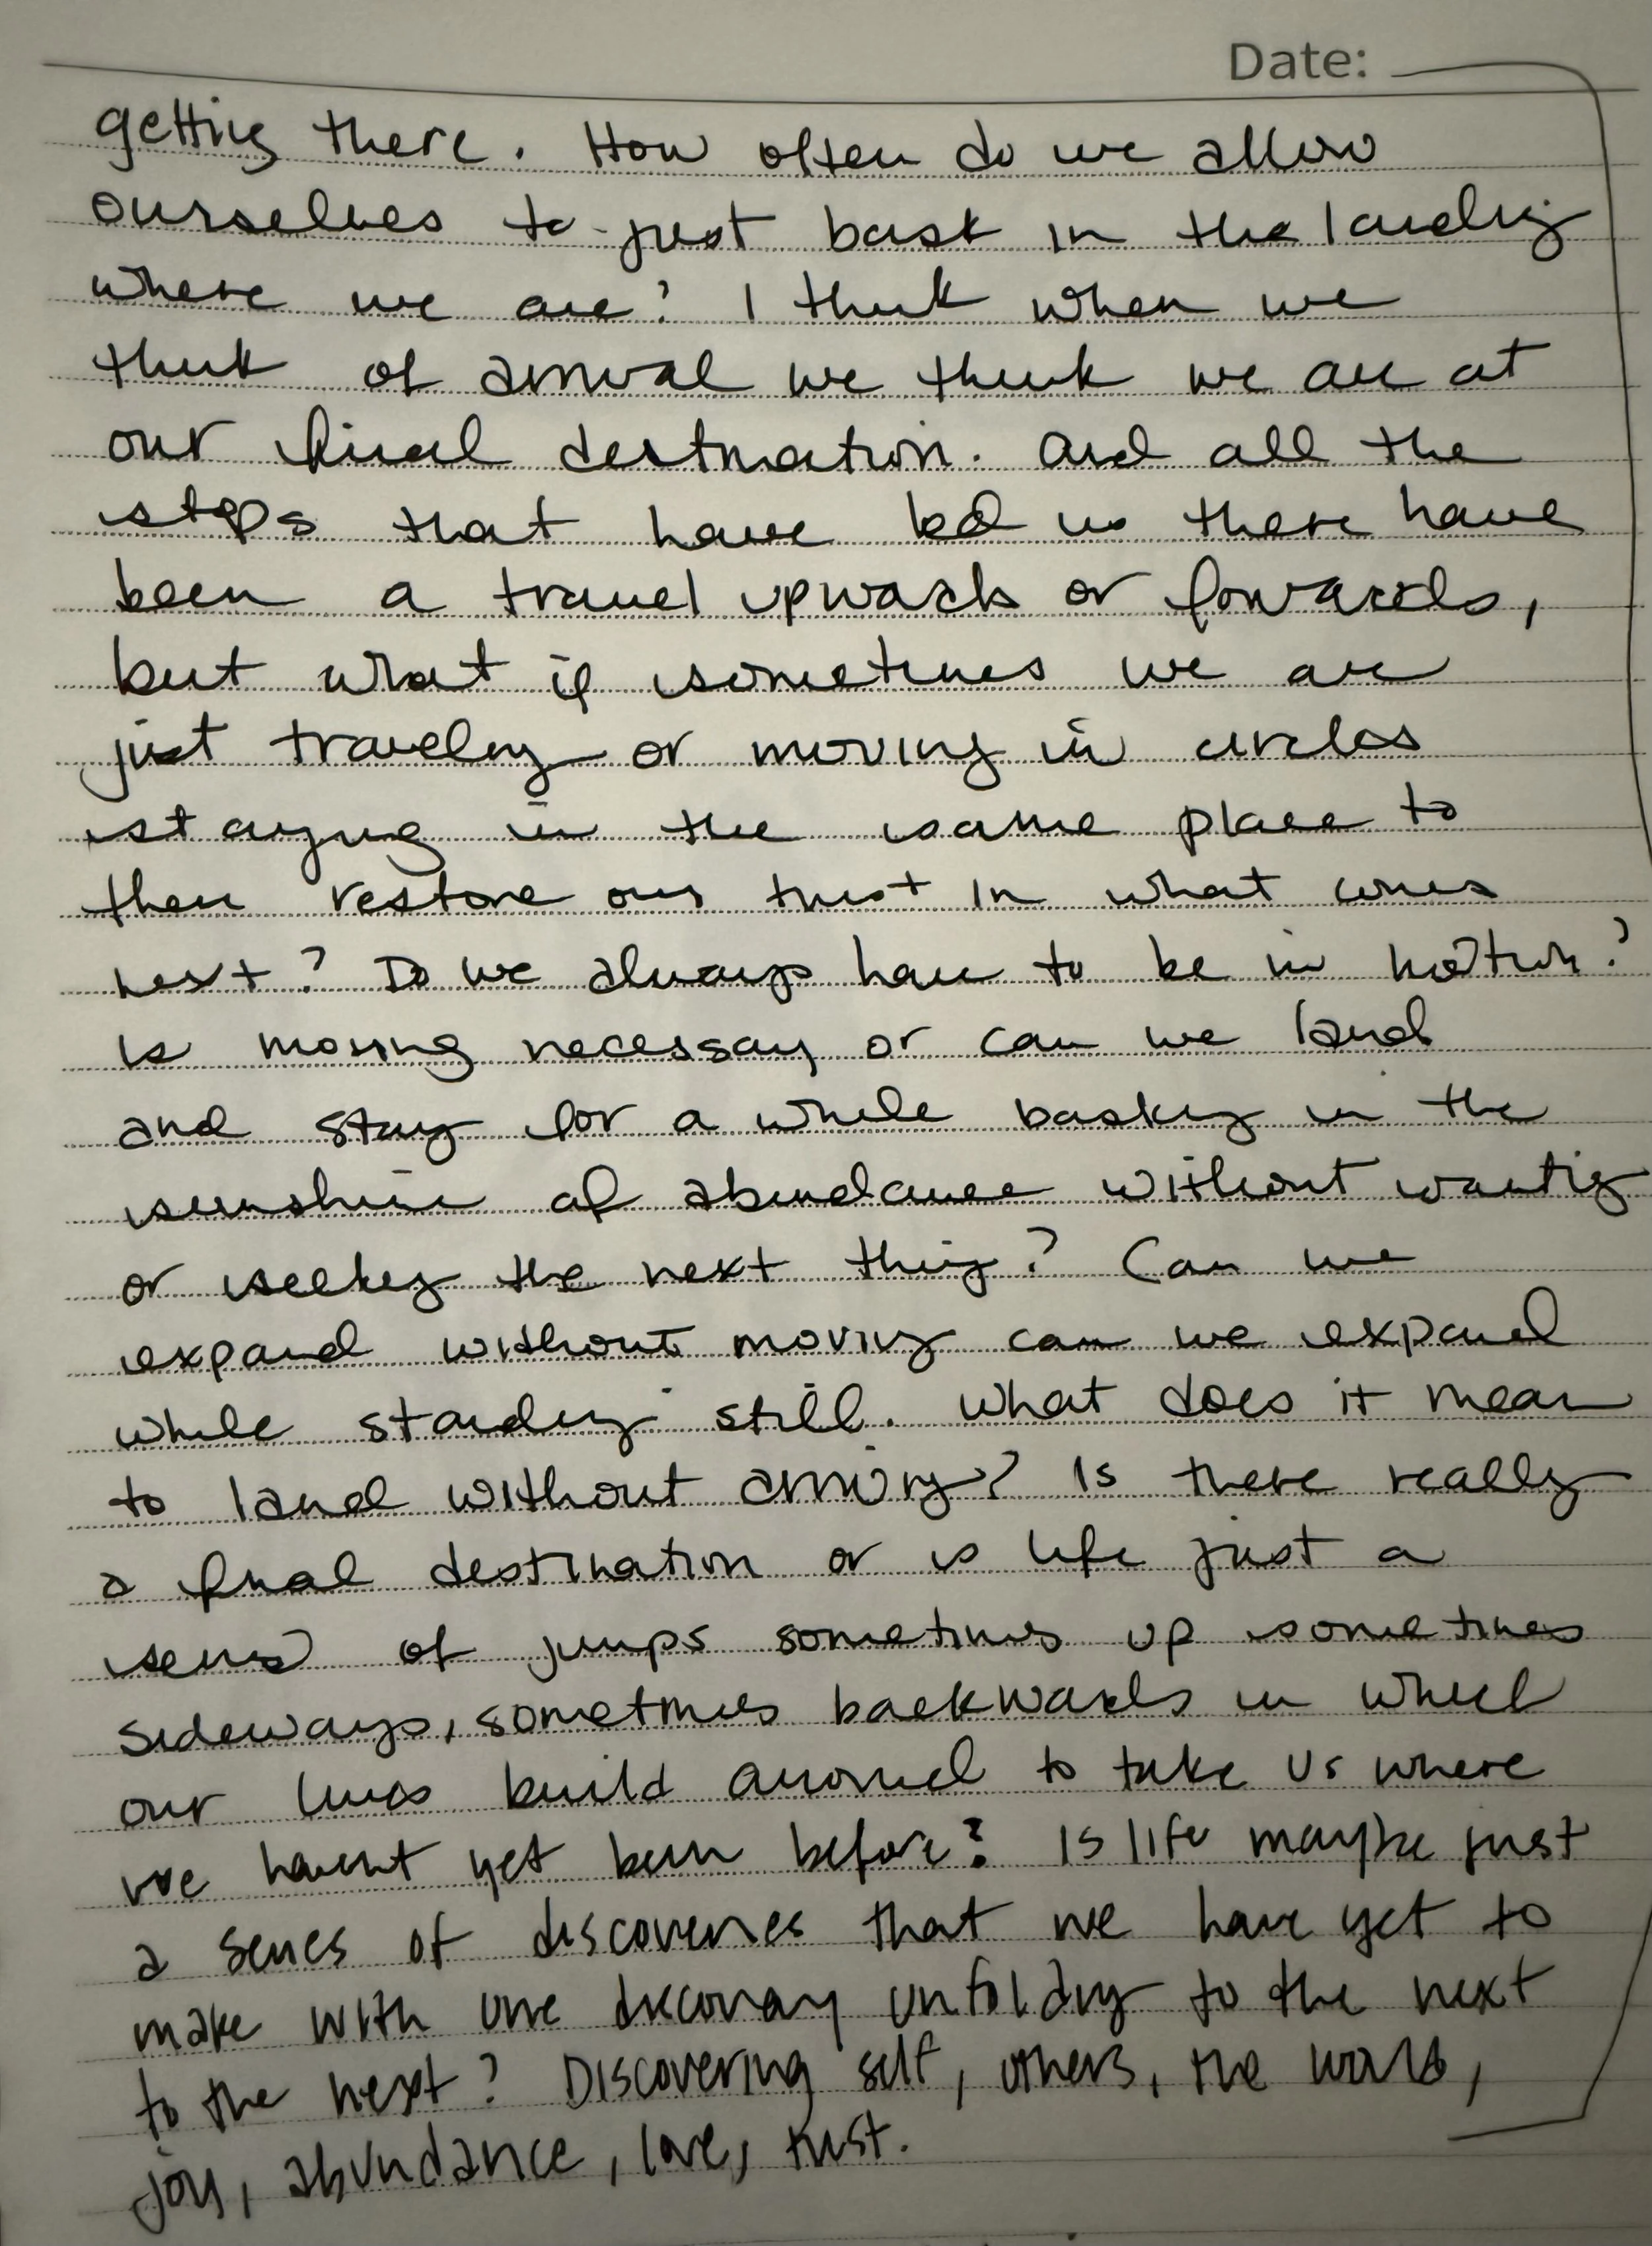 Date:
getting there. How often do we allow
ourselves to just bask in the landing
where we are? I think when we
think of arrival we think we are at
our final destination. And all the
steps that have led us there have
been a travel upwards or forwards,
but what if sometimes we are
just traveling or moving in circles
staying in the same place to
then restore our trust in what comes
next? Do we always have to be in motion?
Is moving necessary or can we land
and stay for a while basking in the
sunshine of abundance without wanting
or seeking the next thing? Can we
expand without moving can we expand
while standing still. What does it mean
to land without arriving? Is there really
a final destination or is life just a
series of jumps sometimes up sometimes
sideways, sometimes backwards in which
our lives build around to take us where
we havent yet been before? Is life maybe just
a series of discoveries that we have yet to
make with one discovery unfolding to the next
to the next? Discovering self, others, the world,
joy, abundance, love, trust.